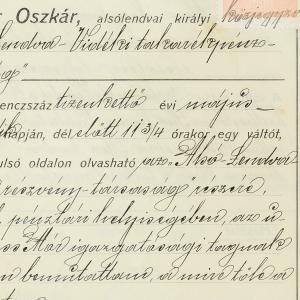 r Oszkár, alsólendvai királyi közjegyző
Lendva-Vidéki takarékpénz-
ság"
enczszáz tizenkettő évi május
napján, dél előtt 11 3/4 órakor egy váltót,
ulsó oldalon olvasható az "Alsó-Lendva
részvény-társaság" részére,
pénztári helyiségében, az ü
Mór igazgatósági tagnak
n bemutattam, a mire tőle a